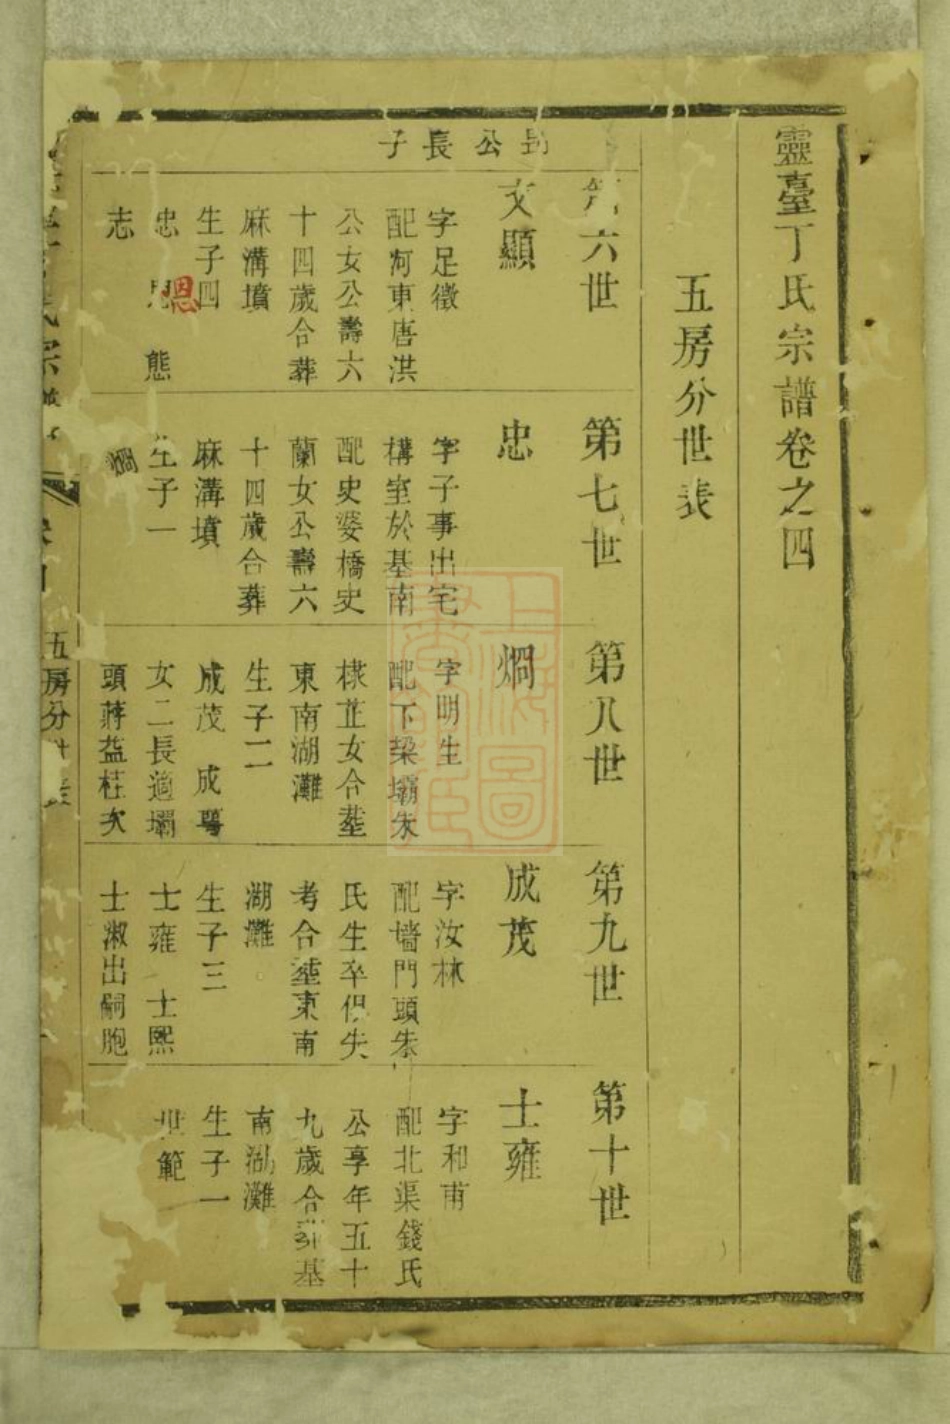 靈臺丁氏宗譜卷之四
五房分世表
公長子
第六世
文顯
字足徵
配河東唐洪
公女公壽六
十四歲合葬
麻溝墳
生子四
忠 態
恩
志
第七世
忠
字子事出宅
構室於基南
配史婆橋史
蘭女公壽六
十四歲合葬
麻溝墳
生子一
第八世
烱
字明生
配下梁壩朱
棣芷女合塟
東南湖灘
生子二
成茂 成粤
女二長適壩
頭蔣益桂次
第九世
成茂
字汝林
配墻門頭朱
氏生卒俱失
考合塟東南
湖灘
生子三
士雍 士熙
士淑出嗣胞
第十世
士雍
字和甫
配北渠錢氏
公享年五十
九歲合基
南湖灘
生子一
世範
五房分世表
上海圖書館藏